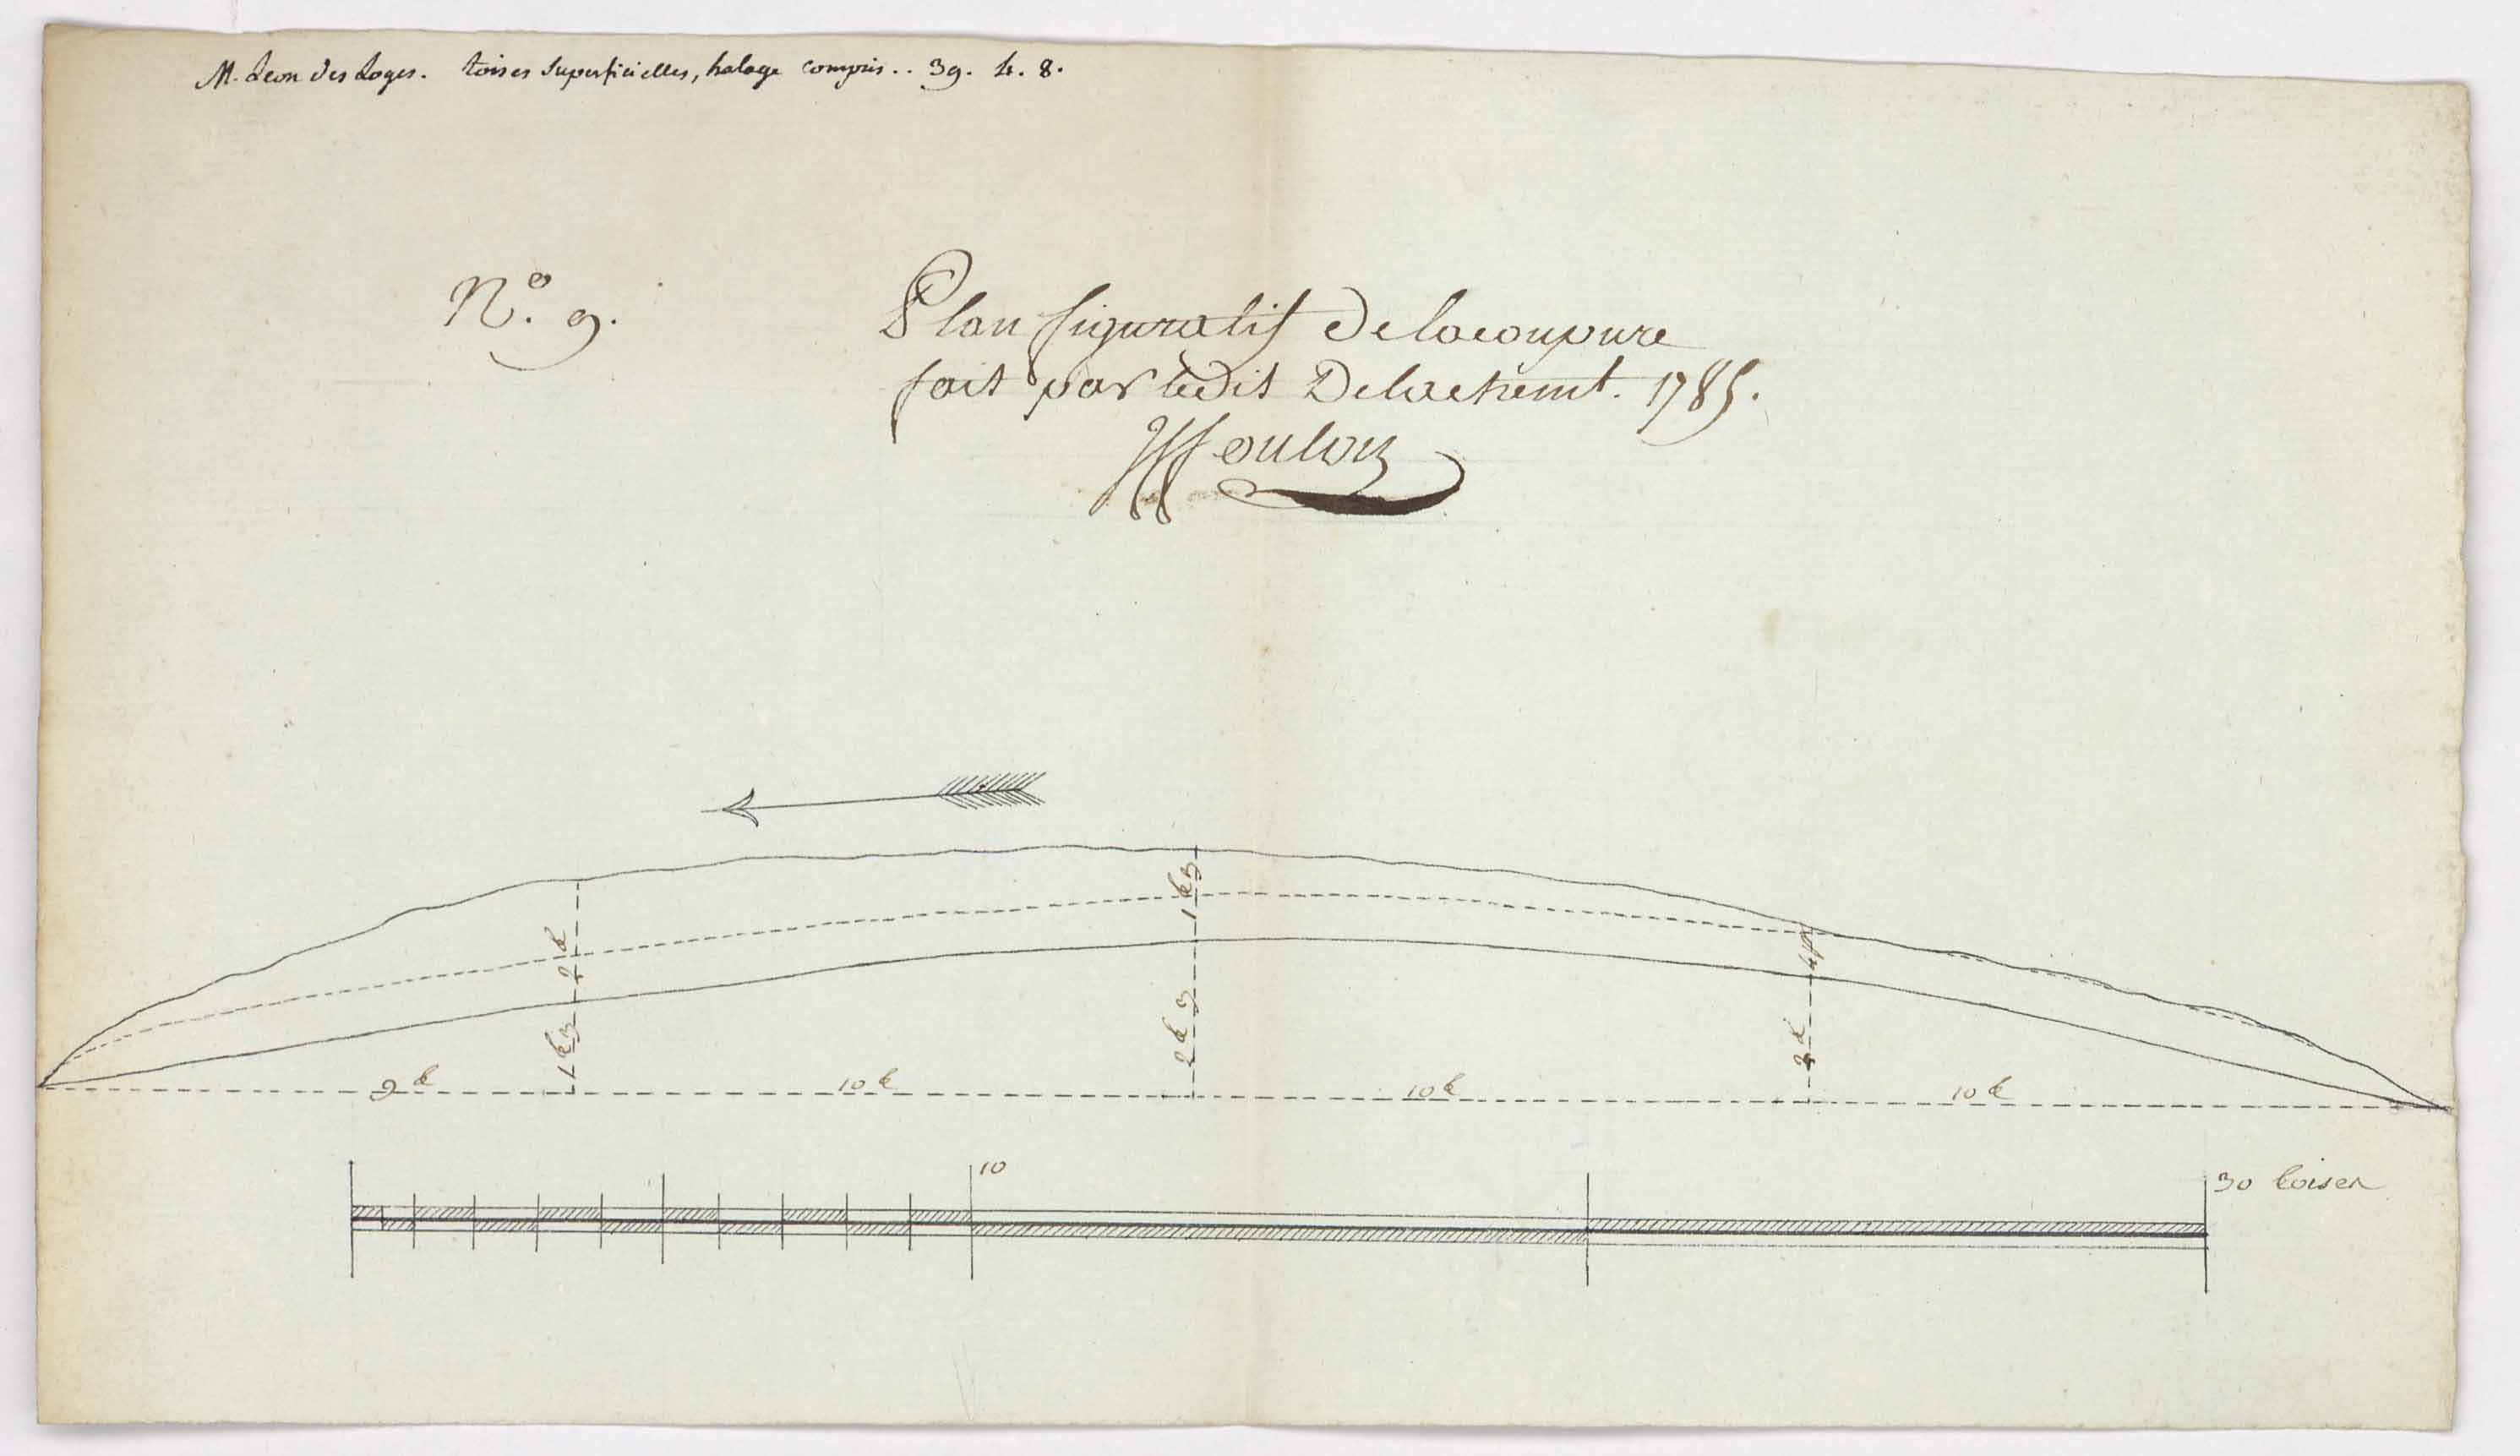 M. Leon des Loges. toises Superficielles, halage compris .. 39. 4. 8.
N.º 9.
Plan figuratif De la coupure
fait par ledit 1785.
1 t 3
2 t
1 t 3
2 t 3
4 p
2 t
9 t
10 t
10 t
10 t
10
30 toises